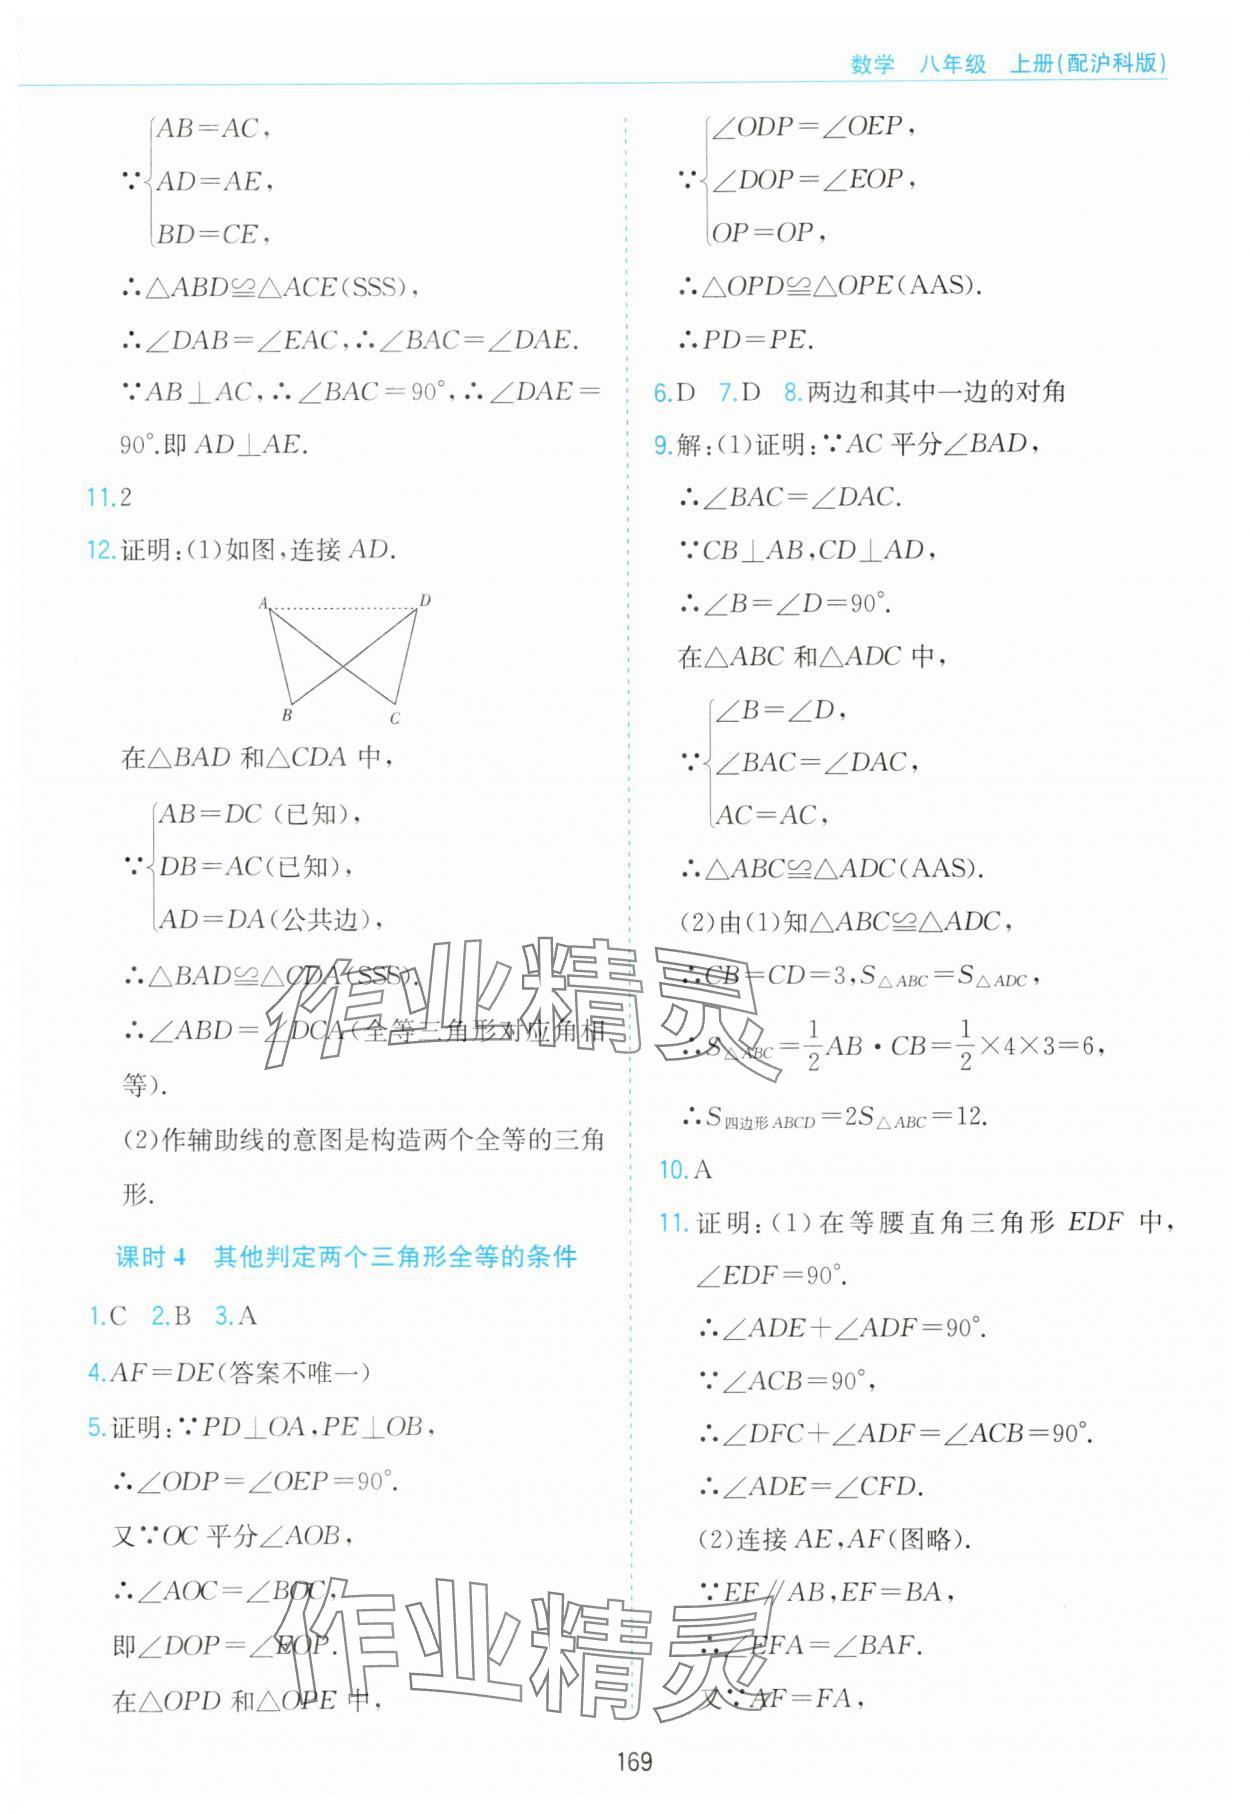 数学 八年级 上册(配沪科版)
∵{AB=AC,
AD=AE,
BD=CE,
∴△ABD≌△ACE(SSS),
∴∠DAB=∠EAC,∴∠BAC=∠DAE.
∵AB⊥AC,∴∠BAC=90°,∴∠DAE=
90°.即 AD⊥AE.
11.2
12.证明:(1)如图,连接 AD.
A D
B C
在△BAD 和△CDA 中,
∵{AB=DC (已知),
DB=AC(已知),
AD=DA(公共边),
∴△BAD≌△CDA(SSS).
∴∠ABD=∠DCA(全等三角形对应角相
等).
(2)作辅助线的意图是构造两个全等的三角
形.
课时 4 其他判定两个三角形全等的条件
1.C 2.B 3.A
4.AF=DE(答案不唯一)
5.证明:∵PD⊥OA,PE⊥OB,
∴∠ODP=∠OEP=90°.
又∵OC 平分∠AOB,
∴∠AOC=∠BOC,
即∠DOP=∠EOP.
在△OPD 和△OPE 中,
∵{∠ODP=∠OEP,
∠DOP=∠EOP,
OP=OP,
∴△OPD≌△OPE(AAS).
∴PD=PE.
6.D 7.D 8.两边和其中一边的对角
9.解:(1)证明:∵AC 平分∠BAD,
∴∠BAC=∠DAC.
∵CB⊥AB,CD⊥AD,
∴∠B=∠D=90°.
在△ABC 和△ADC 中,
∵{∠B=∠D,
∠BAC=∠DAC,
AC=AC,
∴△ABC≌△ADC(AAS).
(2)由(1)知△ABC≌△ADC,
∴CB=CD=3,S△ABC=S△ADC,
∴S△ABC=1/2AB·CB=1/2×4×3=6,
∴S四边形ABCD=2S△ABC=12.
10.A
11.证明:(1)在等腰直角三角形 EDF 中,
∠EDF=90°.
∴∠ADE+∠ADF=90°.
∵∠ACB=90°,
∴∠DFC+∠ADF=∠ACB=90°.
∴∠ADE=∠CFD.
(2)连接 AE,AF(图略).
∵EF∥AB,EF=BA,
∴∠EFA=∠BAF.
又∵AF=FA,
作业精灵
作业精灵
169